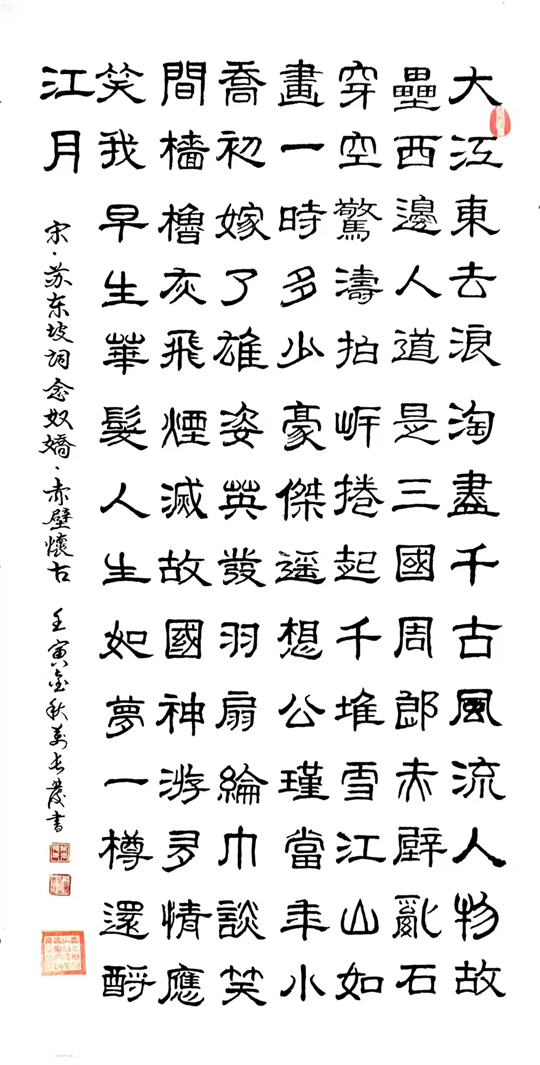 大江東去浪淘盡千古風流人物故
壘西邊人道是三國周郎赤壁亂石
穿空驚濤拍岸捲起千堆雪江山如
畫一時多少豪傑遥想公瑾當年小
喬初嫁了雄姿英發羽扇綸巾談笑
間檣櫓灰飛煙滅故國神游多情應
笑我早生華髮人生如夢一樽還酹
江月
宋·苏东坡词念奴嬌·赤壁懷古 壬寅金秋 書